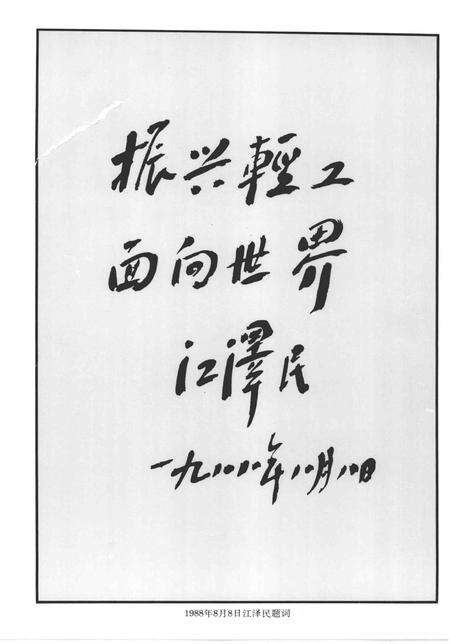 振兴輕工
面向世界
江澤民
一九八八年八月八日
1988年8月8日江泽民题词